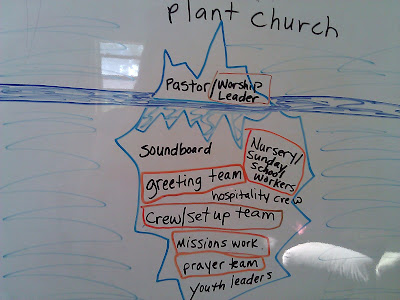 Plant Church
Pastor/Worship
Leader
Soundboard
Nursery/
Sunday
School
Workers
greeting team
hospitality crew
Crew/set up team
Missions work
prayer team
youth leaders